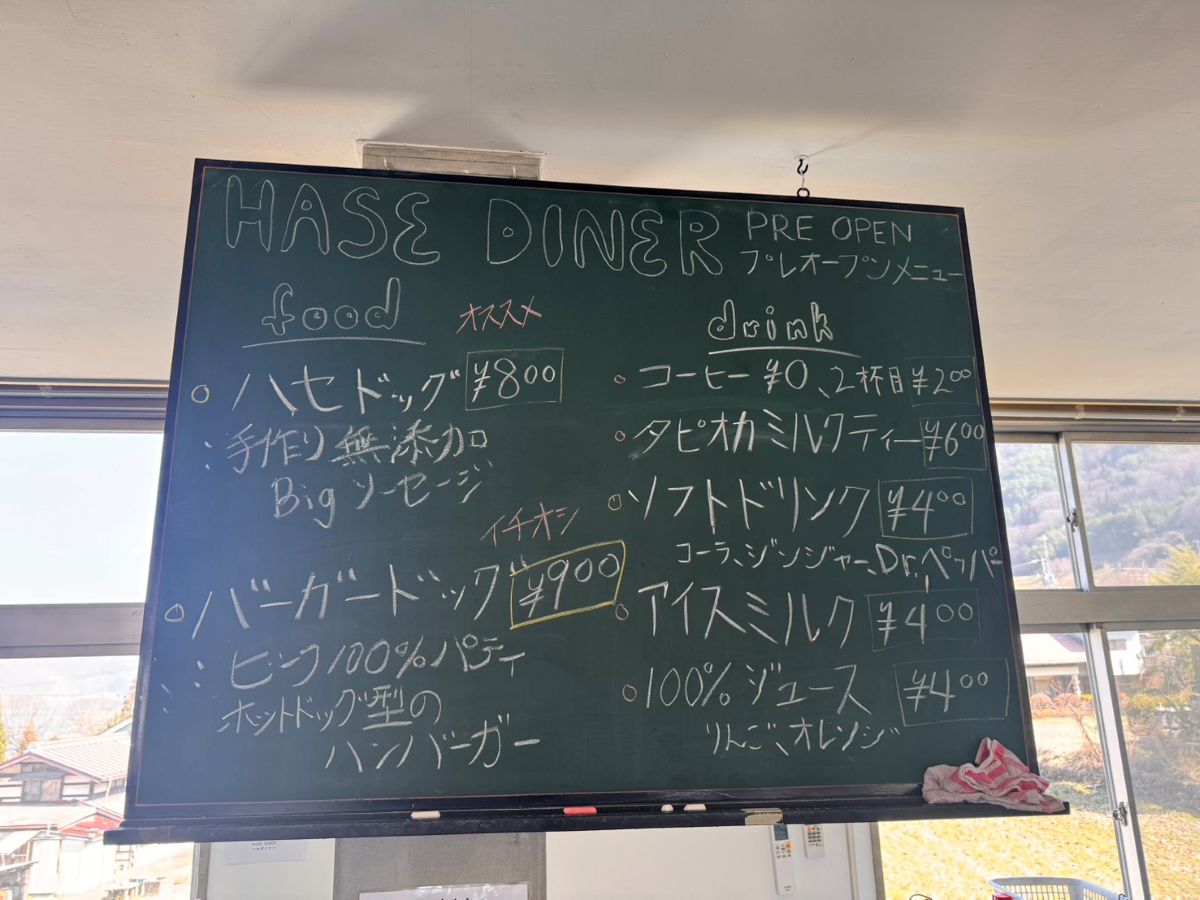 HASE DINER PRE OPEN
プレオープンメニュー
food
オススメ
○ ハセドッグ ¥800
: 手作り無添加
Big ソーセージ
イチオシ
○ バーガードッグ ¥900
: ビーフ100%パティ
ホットドッグ型の
ハンバーガー
drink
○ コーヒー ¥0、2杯目 ¥200
○ タピオカミルクティー ¥600
○ ソフトドリンク ¥400
コーラ、ジンジャー、Dr.ペッパー
○ アイスミルク ¥400
○ 100% ジュース ¥400
りんご、オレンジ
HASE DINER